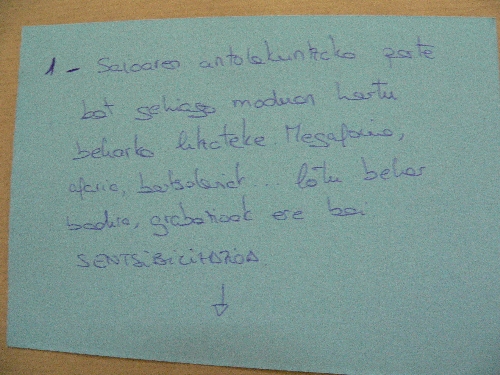 1 - Saioaren antolakuntzako parte
bat gehiago moduan hartu
beharko litzateke. Megafonia,
afaria, bertsolariak... lotu behar
badira, grabazioak ere bai.
SENTSIBILIZAZIOA
↓